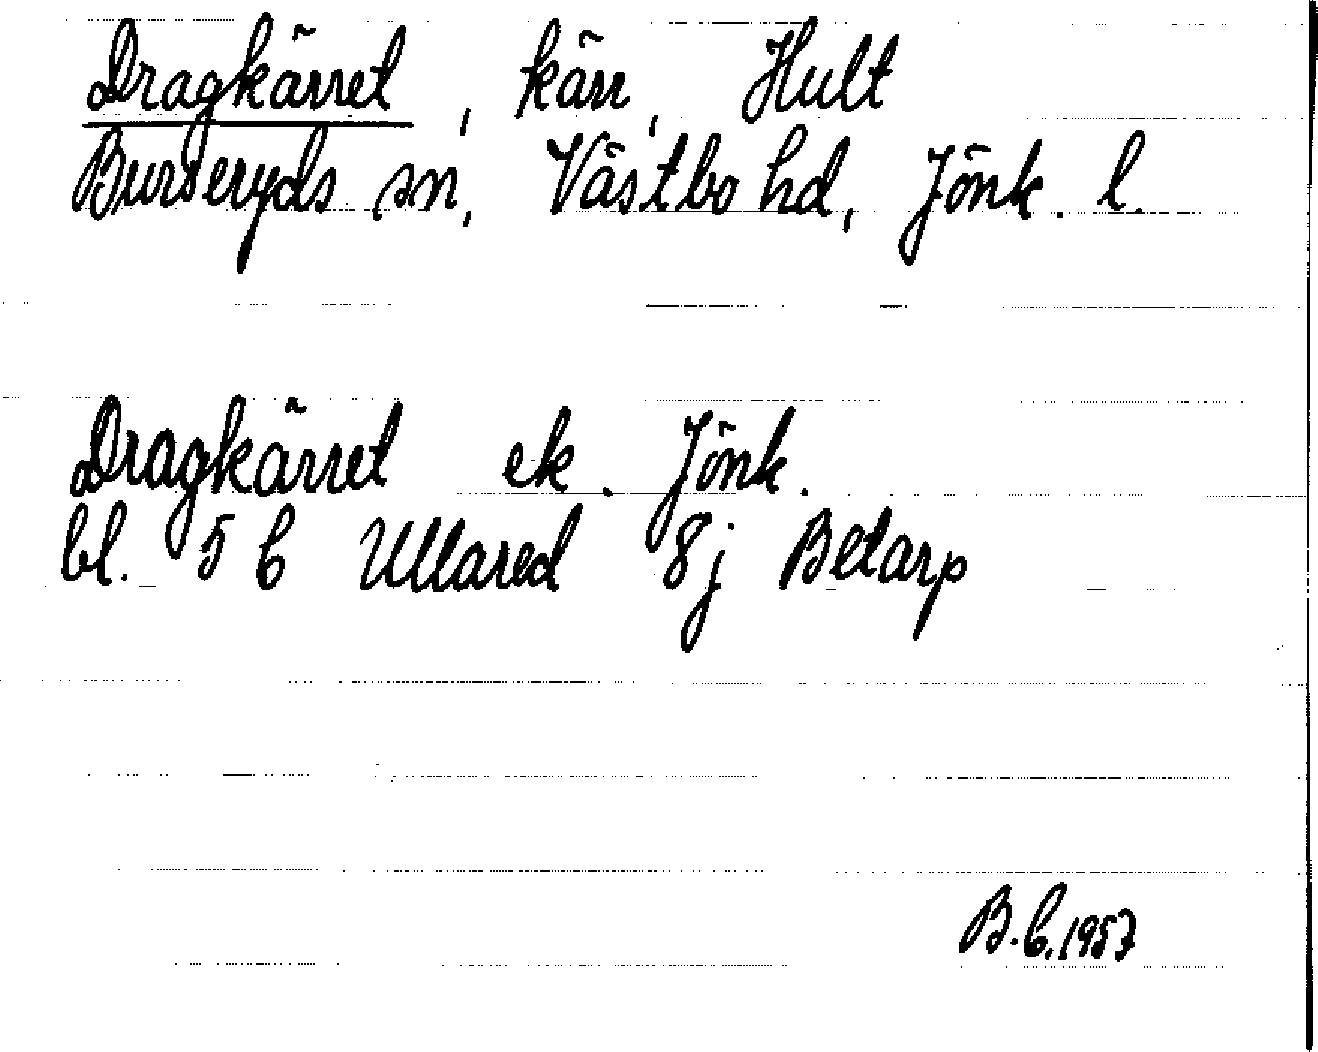 Dragkärret, kärr, Hult
Burseryds sn, Västbo hd, Jönk. l.
Dragkärret ek. Jönk.
bl. 5 C Ullared 8j Betarp
B.C. 1957